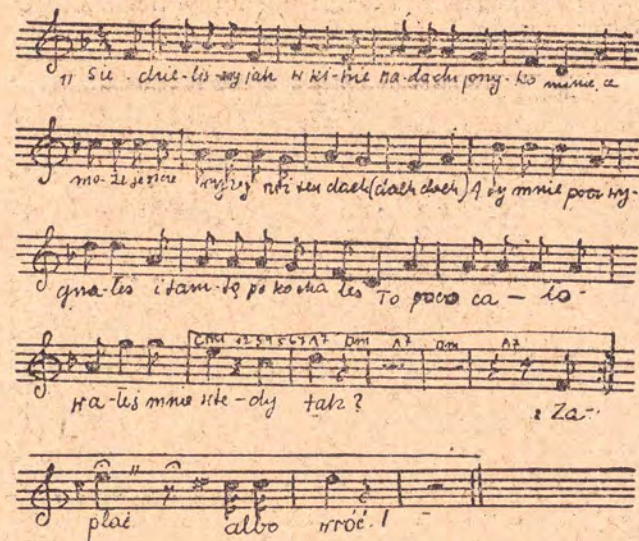 1) Sie-dzie-liś-my jak w ki-nie na dachu przy ko-minie, a
mo-że jeszcze wyżej niż ten dach (dach dach) A ty mnie poco wy-
gna-łeś i tam-tę po kocha łeś To poco ca - ło-
A7 Dm A7 Dm A7
wa-łeś mnie wte-dy tak? Za-
płać albo wróć!